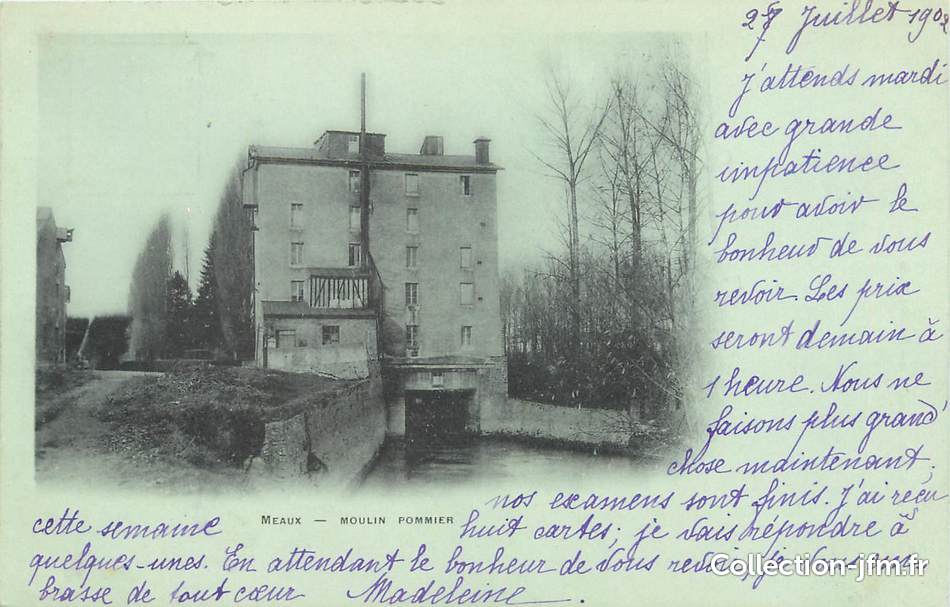 28 Juillet 1902
J'attends mardi
avec grande
impatience
pour avoir le
bonheur de vous
revoir. Les prix
seront demain à
1 heure. Nous ne
faisons plus grand'
chose maintenant,
nos examens sont finis. J'ai reçu
cette semaine
MEAUX — MOULIN POMMIER
huit cartes; je vais répondre à
quelques-unes. En attendant le bonheur de vous revoir, je vous em-
brasse de tout cœur Madeleine.
Collection-jfm.fr